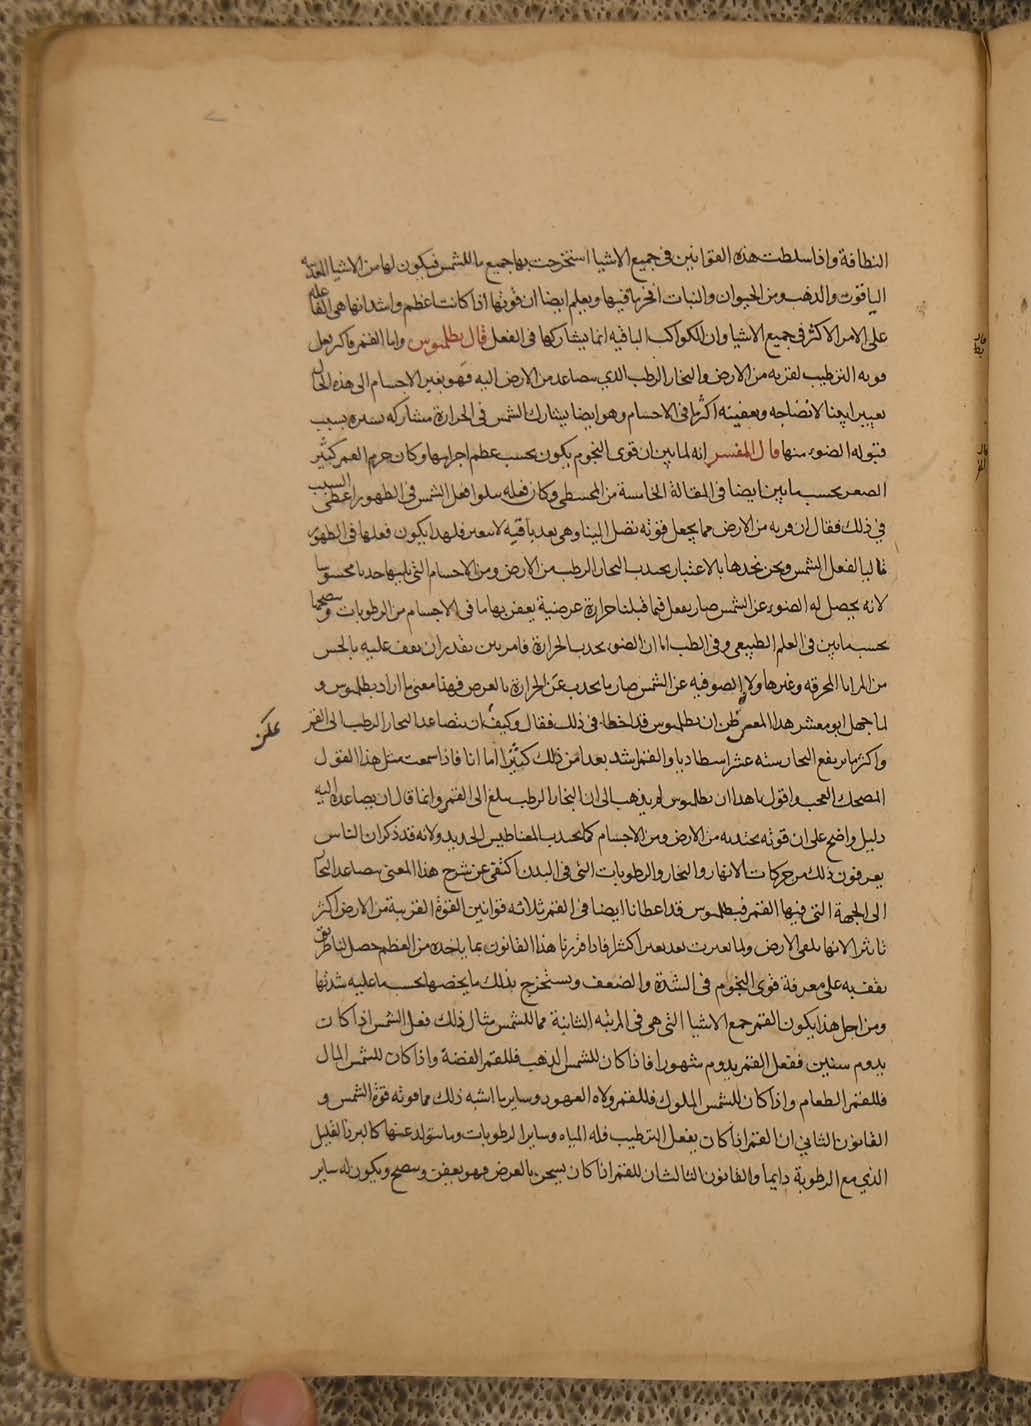 النظافة واذا سلطت هذه القوانين في جميع الاشيا استخرجت بها جميع ما للشمس فيكون لها من الاشيا المعدنيه
الياقوت والذهب ومن الحيوان والنبات افخر ما فيها ويعلم ايضا ان قوتها اذا كانت اعظم واشد انها هي الفاعله
على الامر الاكثر في جميع الاشيا وان الكواكب الباقيه انما يشاركها في الفعل قال بطلميوس واما القمر فاكثر فعل
قوته الترطيب لقربه من الارض والبخار الرطب الذي يتصاعد من الارض اليه فهو يغير الاجسام الى هذه الحال
تغييرا بينا لانضاجه وتعفينه اكثر ما في الاجسام وهو ايضا يشارك الشمس في الحرارة مشاركه يسيره بسبب
قبوله الضوء منها قال المفسر انه لما بين ان قوى النجوم يكون بحسب عظم اجرامها وكان جرم القمر كثير
الصغر بحسب ما بين ايضا في المقالة الخامسة من المجسطي وكان فعله يتلوا فعل الشمس في الظهور اعطى السبب
في ذلك فقال ان قربه من الارض مما يجعل قوته تصل الينا وهي بعد باقيه لا تتغير فلهذا يكون فعلها في الظهور
تاليا لفعل الشمس ونحن نجدها بالاعتبار يجذب البخار الرطب من الارض ومن الاجسام التي يليها جذبا محسوسا
لانه يحصل له الضوء عن الشمس صار يفعل فيما قبلنا حرارة عرضية يعفن بها ما في الاجسام من الرطوبات وينضجها
بحسب ما بين في العلم الطبيعي وفي الطب اما ان الضوء يحدث الحرارة فامر بين نقدر ان نقف عليه بالحس
من المرايا المحرقه وغيرها ولان الضو فيه عن الشمس صار ما يحدث عن الحرارة بالعرض فهذا معنى ما اراد بطلميوس و
لما جهل ابو معشر هذا المعنى ظن ان بطلميوس قد اخطا في ذلك فقال وكيف ان يتصاعد البخار الرطب الى القمر
يمكن
واكثر ما يرتفع البخار سته عشر اسطاديا والقمر اشد بعدا من ذلك كثيرا اما انا فاذا سمعت مثل هذا القول
المضحك اتعجب واقول يا هذا ان بطلميوس لم يذهب الى ان البخار الرطب يبلغ الى القمر وانما قال ان يصاعده اليه
دليل واضح على ان قوته يجتذبه من الارض ومن الاجسام كما يجذب المغناطيس الحديد ولانه قد ذكر ان الناس
يعرفون ذلك من حركات الانهار والبخار والرطوبات التي في البدن اكتفى عن شرح هذا المعنى بتصاعد البخار
الى الجهة التي فيها القمر فبطلميوس قد اعطانا ايضا في القمر ثلاثه قوانين القوة القريبة من الارض اكثر
تاثير لانها تلقى الارض ولما تغيرت بعد تغيرا كثيرا فاذا قرنا هذا القانون بما ياخذه من العظم حصل لنا طريق
نقف به على معرفة قوى النجوم في الشدة والضعف ونستخرج بذلك ما يخصها بحسب ما عليه شدتها
ومن اجل هذا يكون القمر جمع الاشيا التي هي في المرتبه الثانية مما للشمس مثال ذلك فعل الشمس اذا كان
يدوم سنين ففعل القمر يدوم شهورا فاذا كان للشمس الذهب فللقمر الفضة واذا كان للشمس المال
فللقمر الطعام واذا كان للشمس الملوك فللقمر ولاه العهود وساير ما اشبه ذلك مما قوته قوة الشمس و
القانون الثاني ان القمر اذا كان يفعل الترطيب فله المياه وساير الرطوبات وما يتولد عنها كالبرد القليل
الذي مع الرطوبة دايما والقانون الثالث ان للقمر اذا كان يسخن بالعرض فهو يعفن وينضج ويكون له ساير